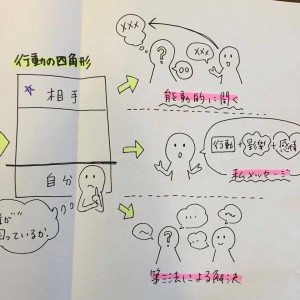 行動の四角形
相手
自分
困っているか。
×××
?
○○
×××
能動的に聞く
行動+影響+感情
私メッセージ
?
〜
…
〜
第三法による解決